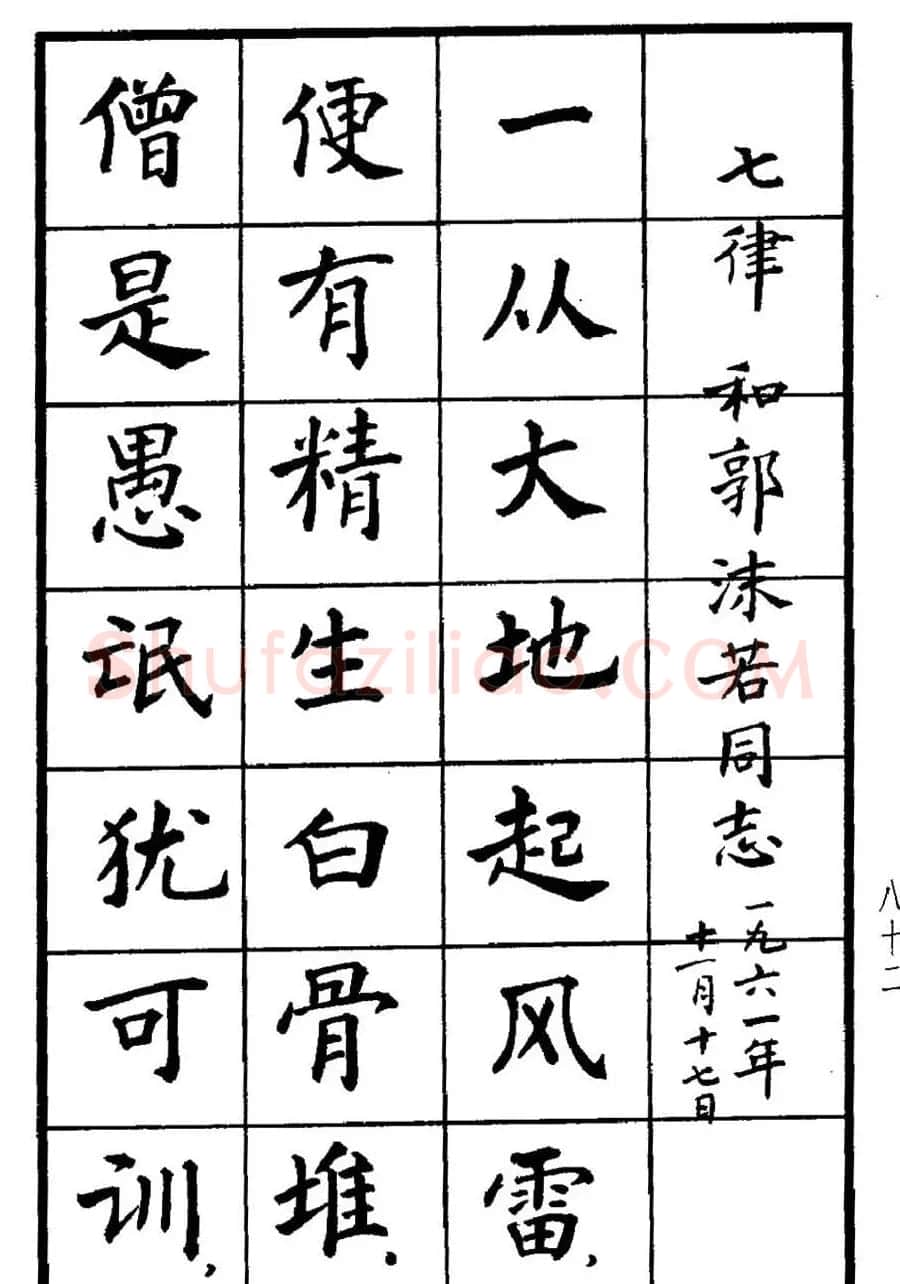 七律 和郭沫若同志
一九六一年
十一月十七日
一从大地起风雷，
便有精生白骨堆．
僧是愚氓犹可训，
八十二
shufaziliao.com